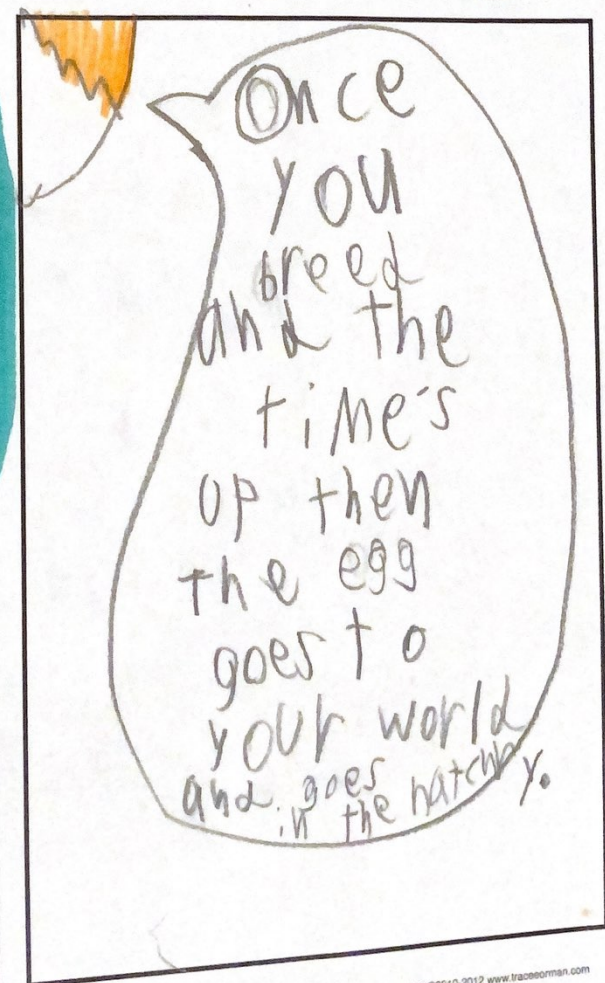 Once
you
breed
and the
time's
up then
the egg
goes to
your world
and goes
in the hatchry.
2012 www.traceeorman.com